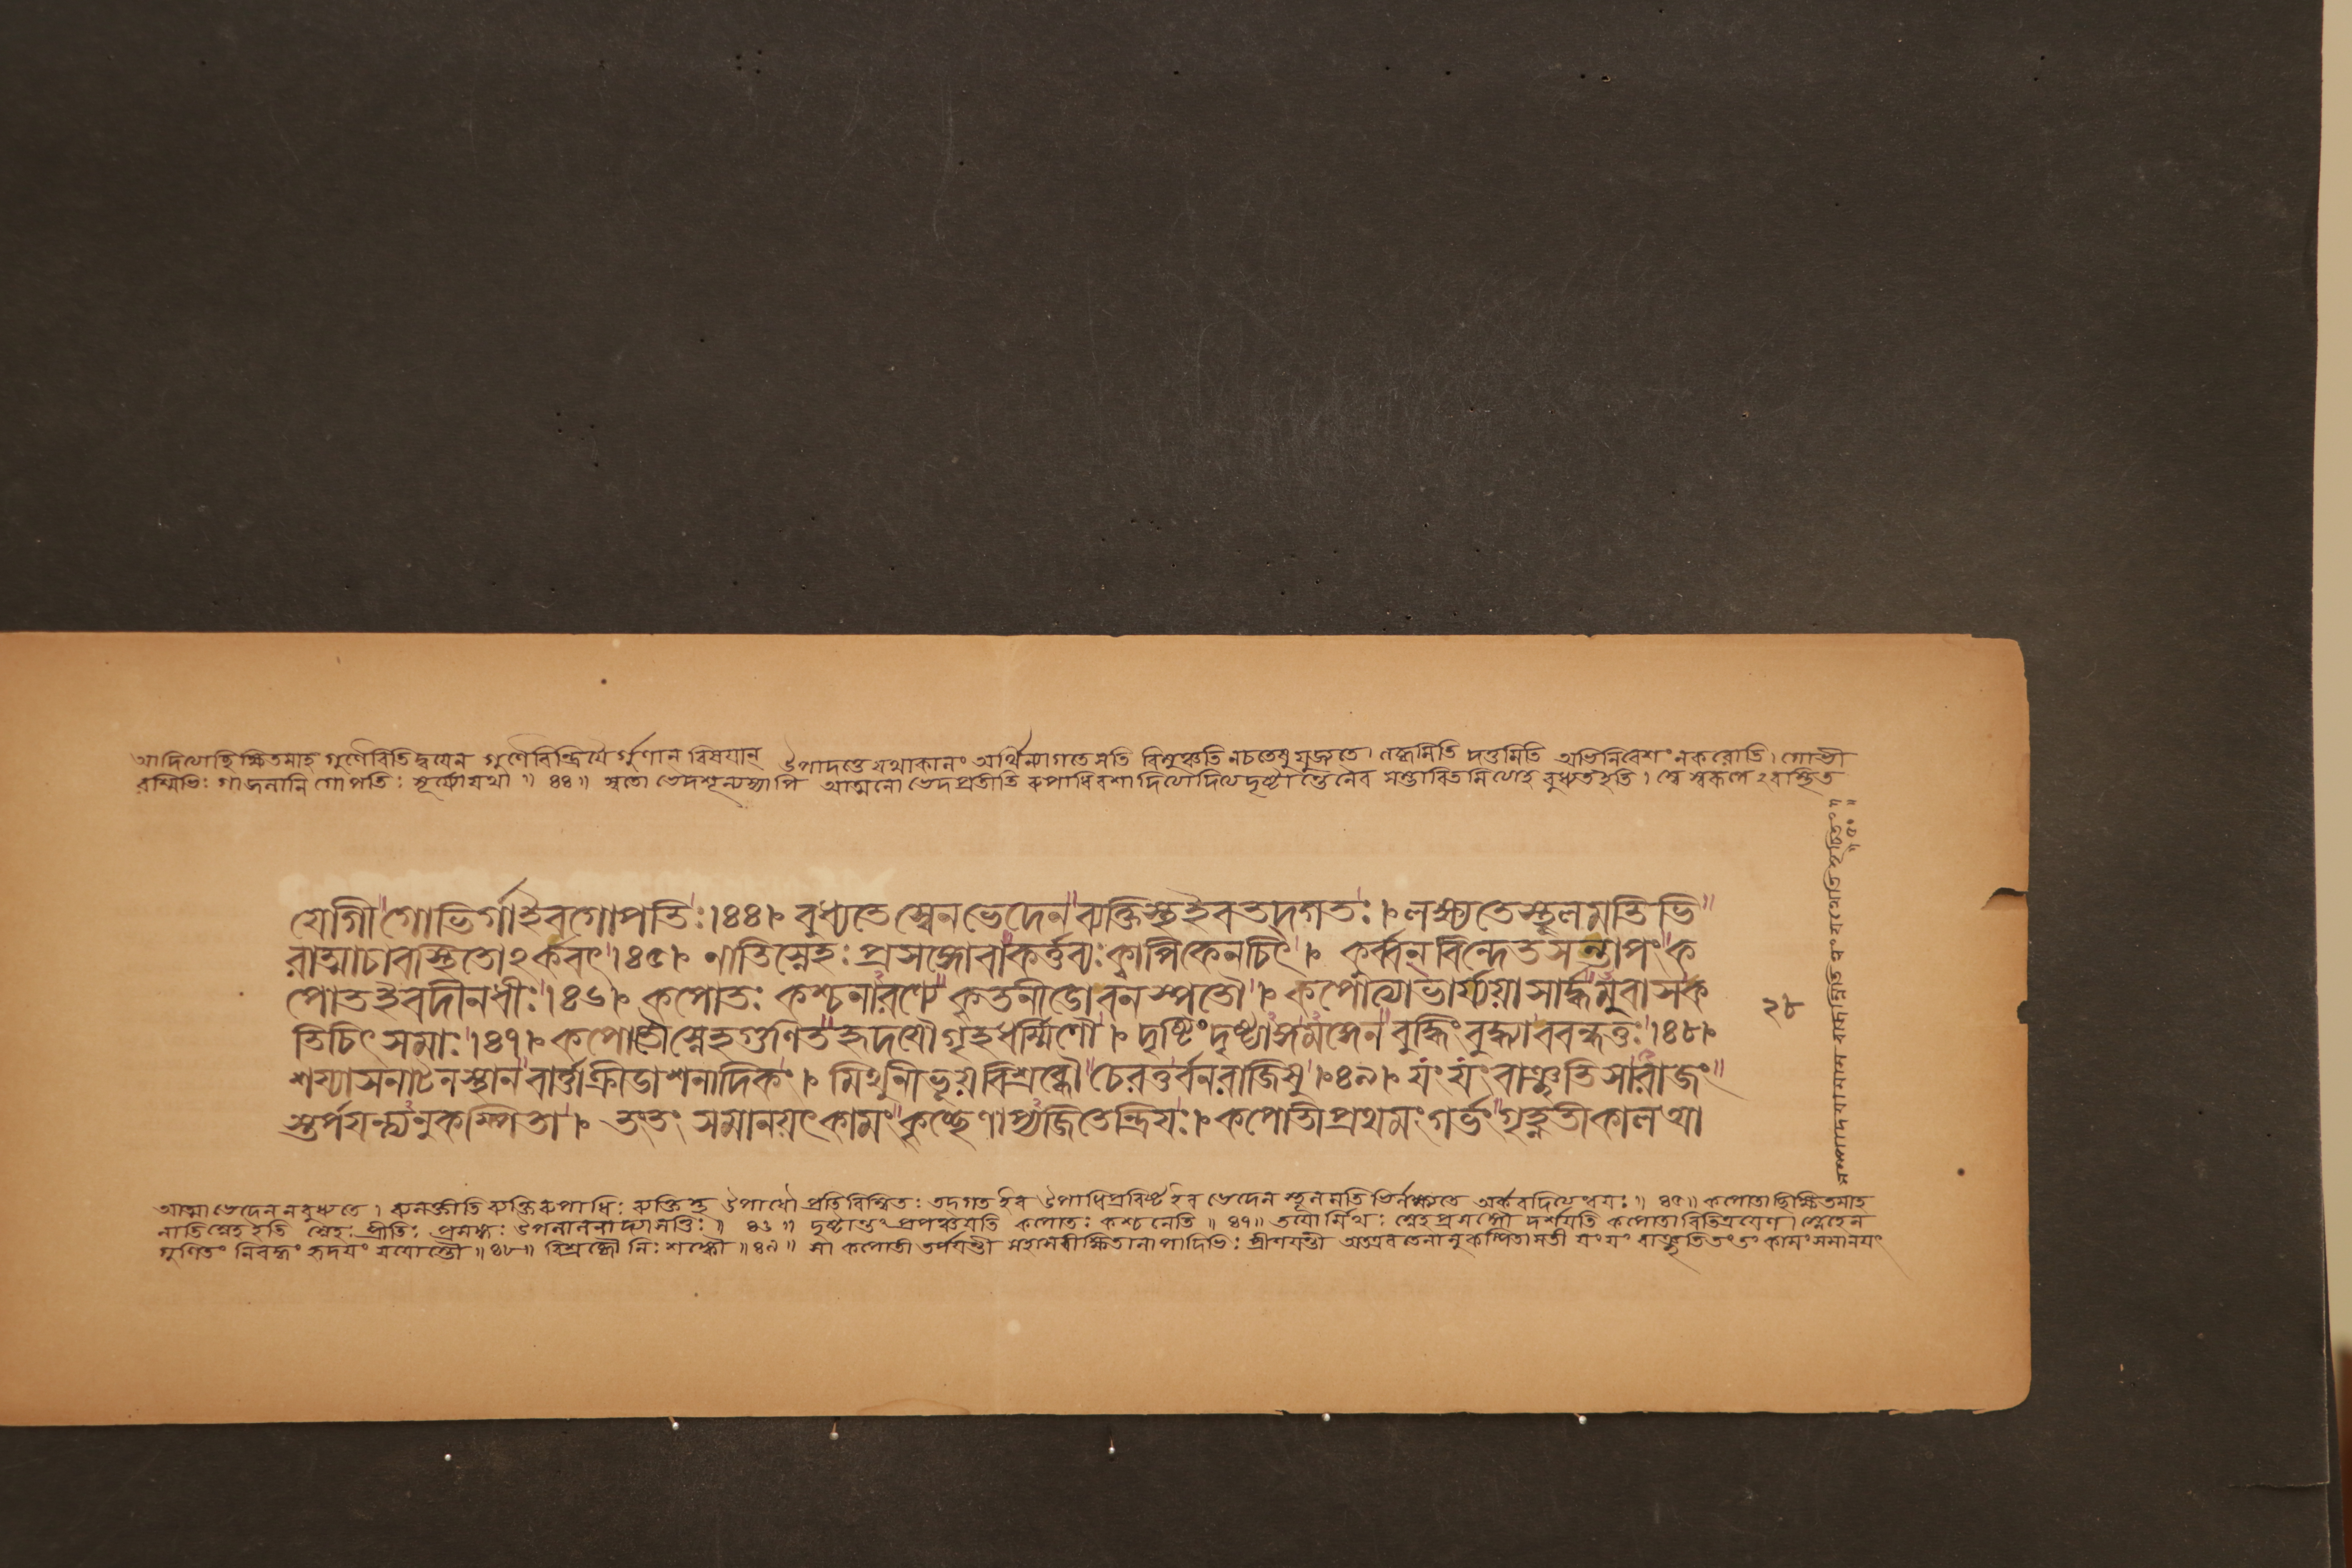 আদিত্যাচ্ছিক্ষিতমাহ গুণৈরিতি দ্বয়েন গুণৈরিন্দ্রিয়ৈ র্গুণান বিষয়ান্ উপাদত্তে যথাকালং অর্থিন্যাগতে সতি বিমুঞ্চতি নচতেষু যুজ্যতে। লব্ধমিতি দত্তমিতি অভিনিবেশং নকরোতি। গোভী
রশ্মিভিঃ গা জলানি গোপতিঃ সূর্য্যো যথা॥ ৪৪॥ স্বতো ভেদশূন্যস্যাপি আত্মনো ভেদপ্রতীতি রুপাধিবশাদিত্যাদিত্যদৃষ্টান্তেনৈব সম্ভাবিতমিত্যাহ বুধ্যতইতি। স্বে স্বরূপেঽবস্থিত
যোগী গোভির্গাইবগোপতিঃ।৪৪। বুধ্যতে স্বেনভেদেন ব্যক্তিস্থইবতদ্গতঃ। লক্ষ্যতেস্থূলমতিভি
রাত্মাচাবস্থিতোঽর্কবৎ।৪৫। নাতিস্নেহঃ প্রসঙ্গোবাকর্ত্তব্যঃক্বাপিকেনচিৎ। কুর্ব্বন্ বিন্দেতসন্তাপং ক
পোতইবদীনধীঃ।৪৬। কপোতঃ কশ্চনারণ্যে কৃতনীড়োবনস্পতৌ। কপোত্যাভার্য্যয়াসার্দ্ধমুবাসক
তিচিৎ সমাঃ।৪৭। কপোতৌস্নেহগুণিতহৃদয়ৌগৃহধর্ম্মিণৌ। দৃষ্টিংদৃষ্ট্যাঙ্গমঙ্গেন বুদ্ধিংবুদ্ধ্যাববন্ধতুঃ।৪৮।
শয্যাসনাটনস্থানবার্ত্তাক্রীড়াশনাদিকং। মিথুনীভূয়বিশ্রব্ধৌ চেরতুর্বনরাজিষু।৪৯। যং যং বাঞ্ছতিসারাজং
স্তর্পয়ন্ত্যনুকম্পিতা। তংতং সমানয়ৎকামং কৃচ্ছ্রেণাপ্যজিতেন্দ্রিয়ঃ। কপোতীপ্রথমংগর্ভং গৃহ্ণতীকালআ
২৮
আত্মা ভেদেন নবুধ্যতে। ব্যনক্তীতি ব্যক্তিরুপাধিঃ ব্যক্তিস্থ উপাধৌ প্রতিবিম্বিতঃ তদ্গতইব উপাধিপ্রবিষ্টইব ভেদেন স্থূলমতিভির্লক্ষ্যতে অর্কবদিত্যন্বয়ঃ॥ ৪৫॥ কপোতাচ্ছিক্ষিতমাহ
নাতিস্নেহইতি স্নেহঃ প্রীতিঃ প্রসঙ্গঃ উপলালনাদ্যাসক্তিঃ॥ ৪৬॥ দৃষ্টান্তং প্রপঞ্চয়তি কপোতঃ কশ্চনেতি॥ ৪৭॥ তয়ো র্মিথঃ স্নেহপ্রসঙ্গৌ দর্শয়তি কপোতাবিতিত্রয়েণ। স্নেহেন
গুণিতং নিবদ্ধং হৃদয়ং যয়োস্তৌ॥৪৮॥ বিশ্রব্ধৌ নিঃশঙ্কৌ॥৪৯॥ সা কপোতী তর্পয়ন্তী আলাপাদিভিঃ প্রীণয়ন্তী অতএবতেনানুকম্পিতাসতী যংযং বাঞ্ছতিতংতং কামং সমানয়ৎ